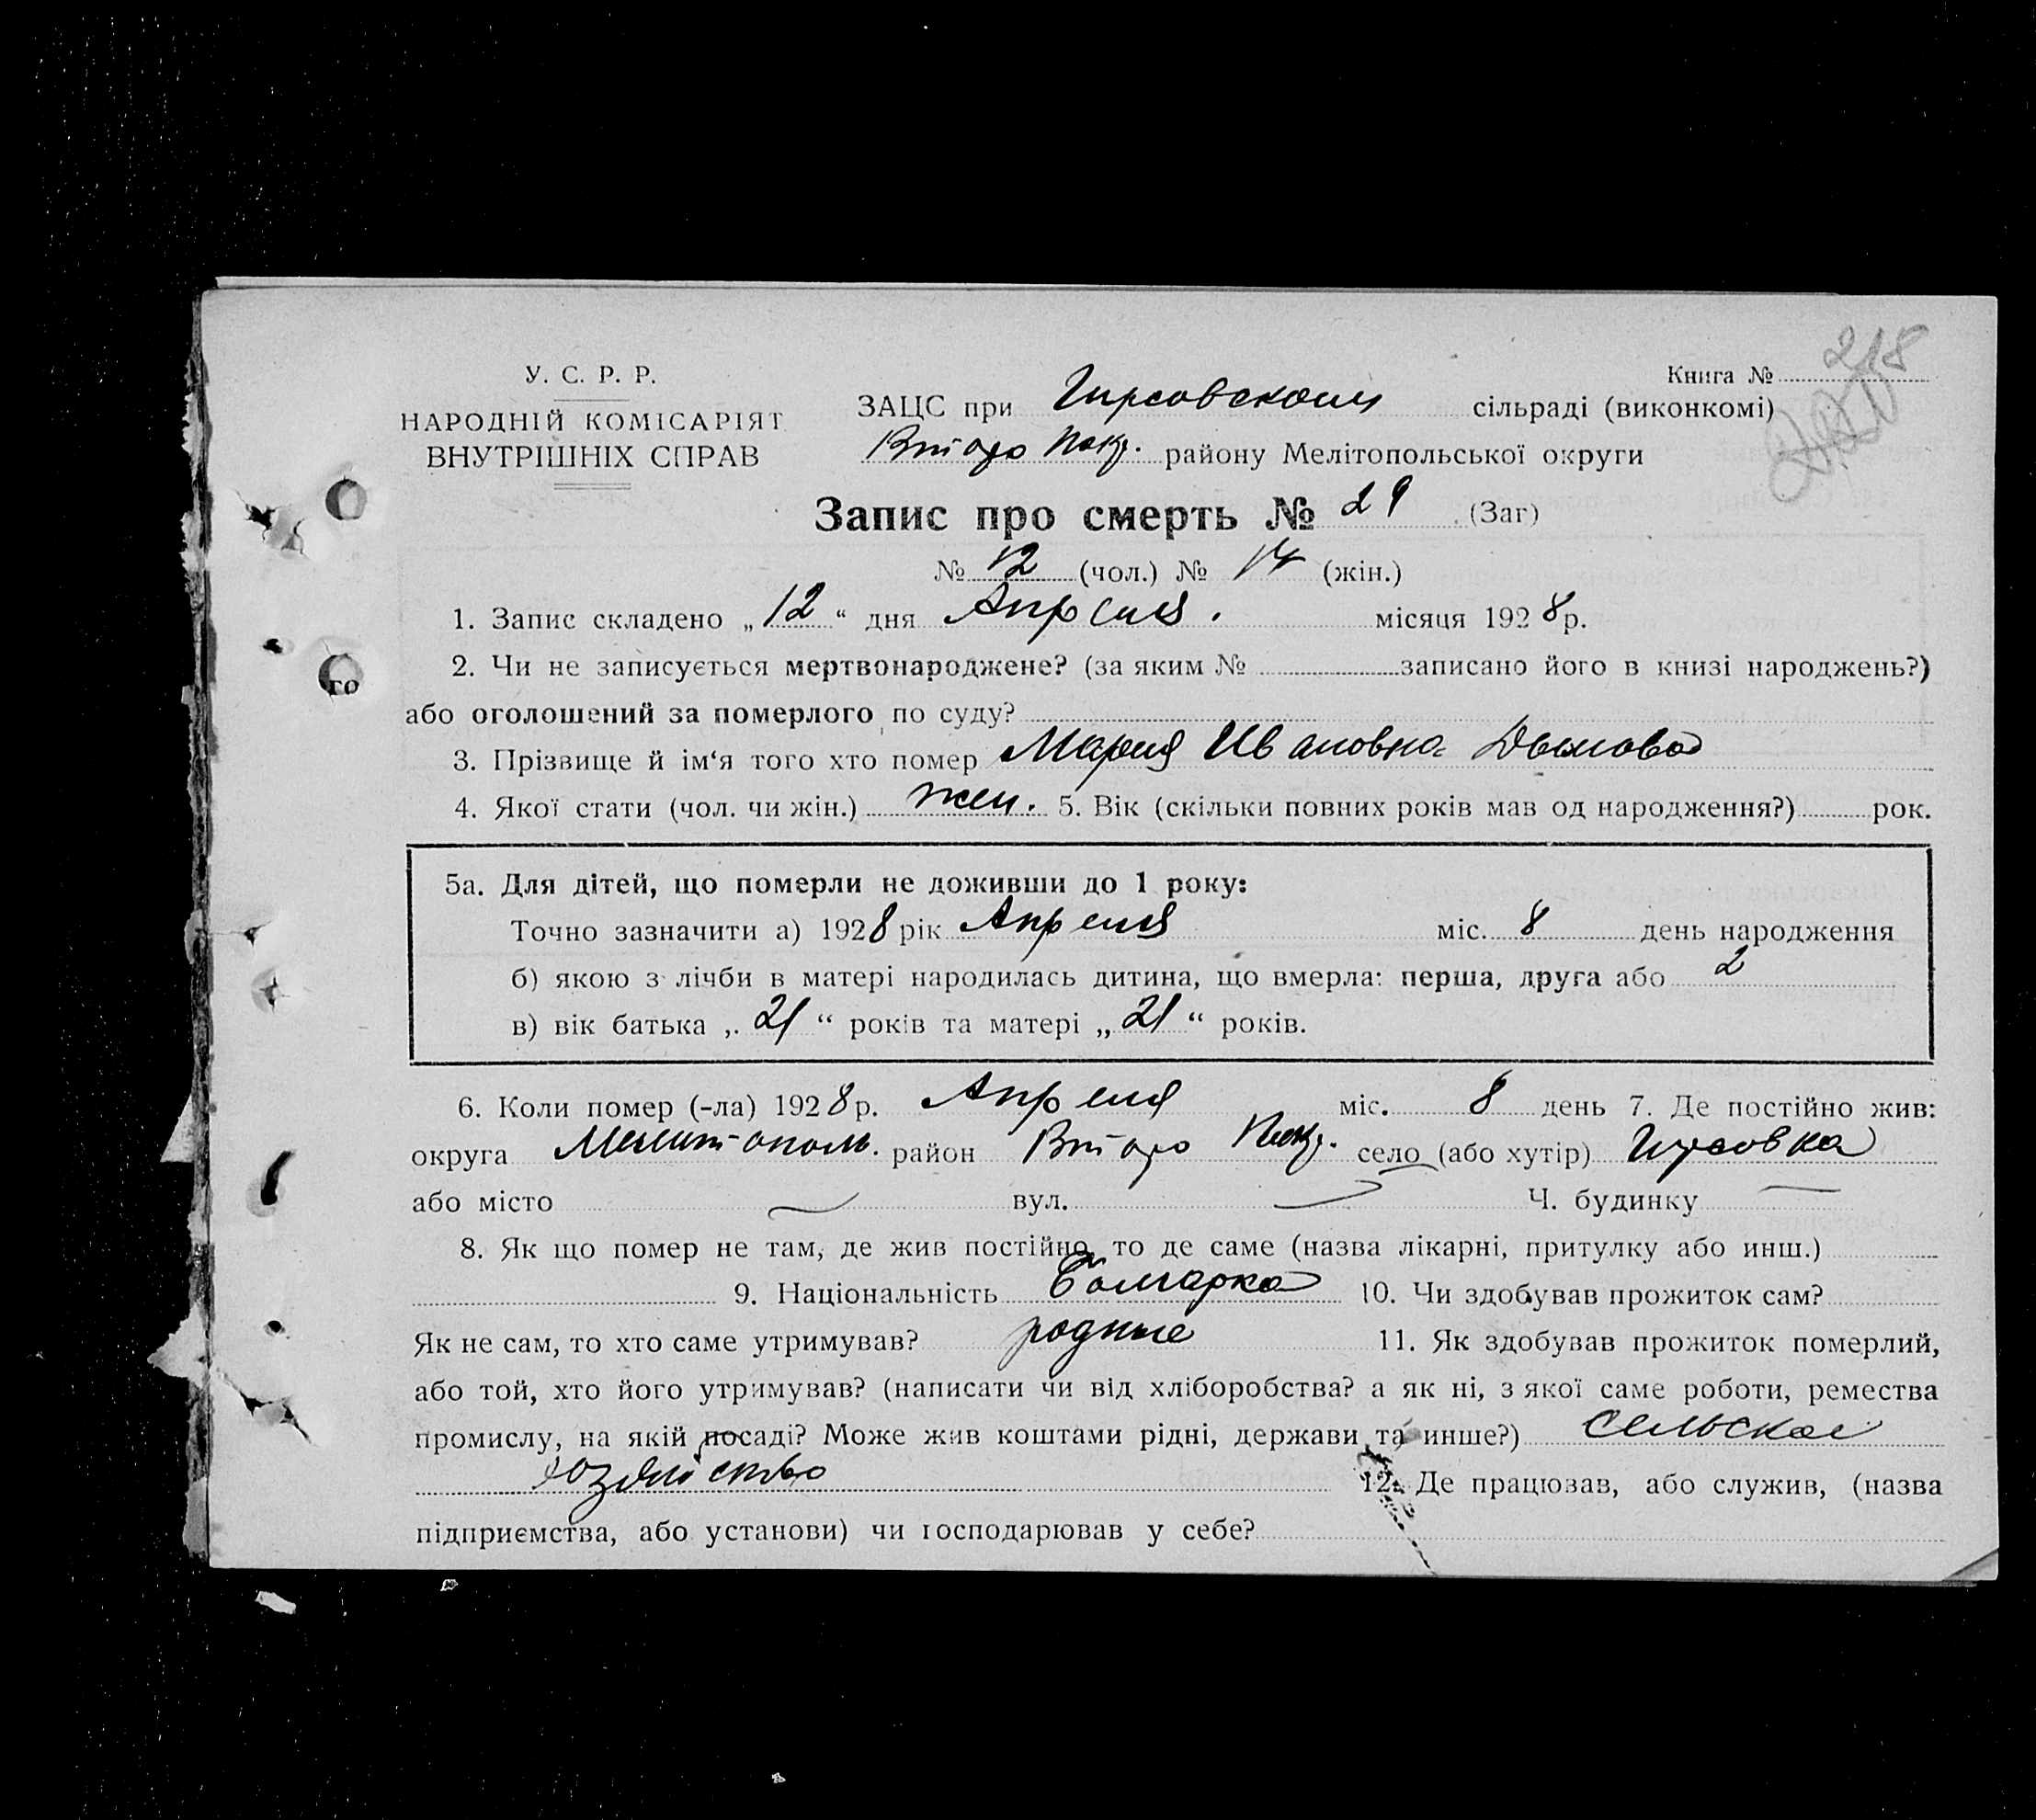 218
У. С. Р. Р.
Книга №
НАРОДНІЙ КОМІСАРІЯТ
ВНУТРІШНІХ СПРАВ
ЗАЦС при Гирсовском сільраді (виконкомі)
Второ Покр. району Мелітопольської округи
Запис про смерть № 29 (Заг)
№ 12 (чол.) № 17 (жін.)
1. Запис складено „12“ дня Апреля. місяця 1928 р.
2. Чи не записується мертвонароджене? (за яким № записано його в книзі народжень?)
або оголошений за померлого по суду?
3. Прізвище й ім‘я того хто помер Мария Ивановна Дымова
4. Якої стати (чол. чи жін.) жен. 5. Вік (скільки повних років мав од народження?) рок.
5а. Для дітей, що померли не доживши до 1 року:
Точно зазначити а) 1928 рік Апреля міс. 8 день народження
б) якою з лічби в матері народилась дитина, що вмерла: перша, друга або 2
в) вік батька „21“ років та матері „21“ років.
6. Коли помер (-ла) 1928 р. Апреля міс. 8 день 7. Де постійно жив:
округа Мелитополь. район Второ Покр. село (або хутір) Гирсовка
або місто вул. Ч. будинку
8. Як що помер не там, де жив постійно, то де саме (назва лікарні, притулку або инш.)
9. Національність Болгарка 10. Чи здобував прожиток сам?
Як не сам, то хто саме утримував? родные 11. Як здобував прожиток померлий,
або той, хто його утримував? (написати чи від хліборобства? а як ні, з якої саме роботи, ремества
промислу, на якій посаді? Може жив коштами рідні, держави та инше?) сельское
хозяйство 12. Де працював, або служив, (назва
підприємства, або установи) чи господарював у себе?
го